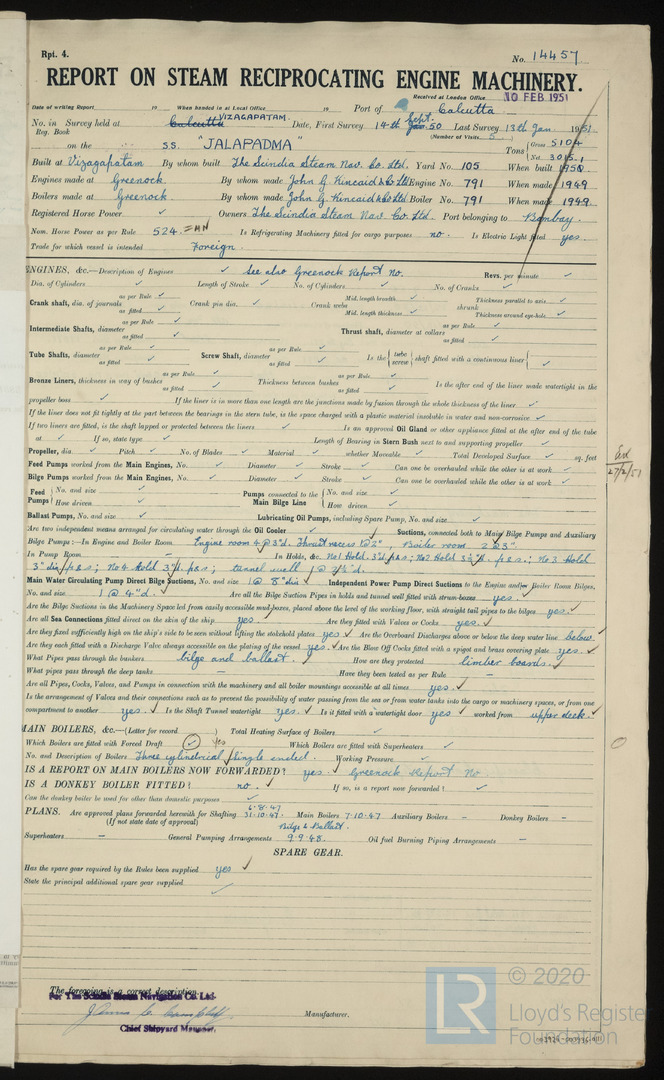 Rpt. 4.
No. 14457
REPORT ON STEAM RECIPROCATING ENGINE MACHINERY.
Received at London Office 10 FEB 1951
Date of writing Report 19 When handed in at Local Office 19 Port of Calcutta
No. in Survey held at Calcutta VIZAGAPATAM. Date, First Survey 14th Sept. Jan 50 Last Survey 13th Jan 1951
Reg. Book (Number of Visits 5 )
on the SS. "JALAPADMA" Tons { Gross 5104 Net 3015.1
Built at Vizagapatam By whom built The Scindia Steam Nav. Co. Ltd. Yard No. 105 When built 1950.
Engines made at Greenock. By whom made John G. Kincaid & Co Ltd Engine No. 791 When made 1949
Boilers made at Greenock. By whom made John G. Kincaid & Co Ltd Boiler No. 791 When made 1949.
Registered Horse Power Owners The Scindia Steam Nav. Co. Ltd. Port belonging to Bombay.
Nom. Horse Power as per Rule 524. = MN Is Refrigerating Machinery fitted for cargo purposes no. Is Electric Light fitted yes.
Trade for which vessel is intended Foreign.
ENGINES, &c.—Description of Engines ✓ See also Greenock Report No. Revs. per minute ✓
Dia. of Cylinders ✓ Length of Stroke ✓ No. of Cylinders ✓ No. of Cranks ✓
Crank shaft, dia. of journals as per Rule ✓ as fitted ✓ Crank pin dia. ✓ Crank webs Mid. length breadth ✓ Mid. length thickness ✓ shrunk Thickness parallel to axis ✓ Thickness around eye-hole ✓
Intermediate Shafts, diameter as per Rule ✓ as fitted ✓ Thrust shaft, diameter at collars as per Rule ✓ as fitted ✓
Tube Shafts, diameter as per Rule ✓ as fitted ✓ Screw Shaft, diameter as per Rule ✓ as fitted ✓ Is the { tube screw } shaft fitted with a continuous liner { ✓
Bronze Liners, thickness in way of bushes as per Rule ✓ as fitted ✓ Thickness between bushes as per Rule ✓ as fitted ✓ Is the after end of the liner made watertight in the
propeller boss ✓ If the liner is in more than one length are the junctions made by fusion through the whole thickness of the liner ✓
If the liner does not fit tightly at the part between the bearings in the stern tube, is the space charged with a plastic material insoluble in water and non-corrosive ✓
If two liners are fitted, is the shaft lapped or protected between the liners ✓ Is an approved Oil Gland or other appliance fitted at the after end of the tube
at ✓ If so, state type ✓ Length of Bearing in Stern Bush next to and supporting propeller ✓
Propeller, dia. ✓ Pitch ✓ No. of Blades ✓ Material ✓ whether Moveable ✓ Total Developed Surface ✓ sq. feet
Feed Pumps worked from the Main Engines, No. ✓ Diameter ✓ Stroke ✓ Can one be overhauled while the other is at work ✓
Bilge Pumps worked from the Main Engines, No. ✓ Diameter ✓ Stroke ✓ Can one be overhauled while the other is at work ✓
Feed Pumps { No. and size ✓ How driven ✓ Pumps connected to the Main Bilge Line { No. and size ✓ How driven ✓
Ballast Pumps, No. and size ✓ Lubricating Oil Pumps, including Spare Pump, No. and size ✓
Are two independent means arranged for circulating water through the Oil Cooler ✓ Suctions, connected both to Main Bilge Pumps and Auxiliary
Bilge Pumps:—In Engine and Boiler Room Engine room 4 @ 3"d. Thrust recess 1 @ 2" Boiler room 2 @ 3"
In Pump Room — In Holds, &c. No1 Hold. 3"d p&s; No2 Hold 3½"d. p&s; No 3 Hold
3" dia p&s; No 4 Hold 3"d. p&s; tunnel well 1 @ 2½"d.
Main Water Circulating Pump Direct Bilge Suctions, No. and size 1 @ 8" dia ✓ Independent Power Pump Direct Suctions to the Engine and/or Boiler Room Bilges,
No. and size 1 @ 4"d. ✓ Are all the Bilge Suction Pipes in holds and tunnel well fitted with strum-boxes yes. ✓
Are the Bilge Suctions in the Machinery Space led from easily accessible mud-boxes, placed above the level of the working floor, with straight tail pipes to the bilges yes. ✓
Are all Sea Connections fitted direct on the skin of the ship yes. ✓ Are they fitted with Valves or Cocks yes. ✓
Are they fixed sufficiently high on the ship's side to be seen without lifting the stokehold plates yes ✓ Are the Overboard Discharges above or below the deep water line below. ✓
Are they each fitted with a Discharge Valve always accessible on the plating of the vessel yes. ✓ Are the Blow Off Cocks fitted with a spigot and brass covering plate yes. ✓
What Pipes pass through the bunkers bilge and ballast. How are they protected limber boards. ✓
What pipes pass through the deep tanks — Have they been tested as per Rule —
Are all Pipes, Cocks, Valves, and Pumps in connection with the machinery and all boiler mountings accessible at all times yes. ✓
Is the arrangement of Valves and their connections such as to prevent the possibility of water passing from the sea or from water tanks into the cargo or machinery spaces, or from one
compartment to another yes. ✓ Is the Shaft Tunnel watertight yes. ✓ Is it fitted with a watertight door yes ✓ worked from upper deck. ✓
MAIN BOILERS, &c.—(Letter for record ) Total Heating Surface of Boilers ✓
Which Boilers are fitted with Forced Draft ✓ Yes Which Boilers are fitted with Superheaters ✓
No. and Description of Boilers Three cylindrical single ended. Working Pressure ✓
IS A REPORT ON MAIN BOILERS NOW FORWARDED? yes. ✓ Greenock Report No
IS A DONKEY BOILER FITTED? no. ✓ If so, is a report now forwarded? ✓
Can the donkey boiler be used for other than domestic purposes ✓
PLANS. Are approved plans forwarded herewith for Shafting 6.8.47 31.10.47. Main Boilers 7.10.47 Auxiliary Boilers — Donkey Boilers —
(If not state date of approval) Bilge & Ballast.
Superheaters — General Pumping Arrangements 9.9.48. Oil fuel Burning Piping Arrangements —
SPARE GEAR.
Has the spare gear required by the Rules been supplied yes ✓
State the principal additional spare gear supplied ✓
27/2/51
The foregoing is a correct description.
For The Scindia Steam Navigation Co. Ltd.
Manufacturer.
Chief Shipyard Manager.
LR © 2020
Lloyd's Register
Foundation